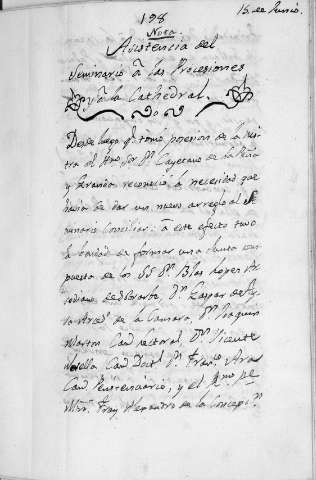 15. de Junio.
198
Nota.
Asistencia del
Seminario à las Procesiones
y à la Cathedral.
Desde luego qe tomó posesion de la
tra el Yllmo Sor Dn Cayetano de la Peña
y Granda reconoció la necesidad que
havia de dar un nuevo arreglo al Se
minario Conciliar: à este efecto tuvo
la bondad de formar una Junta com
puesta de los SS. Dn Blas Lopez Ar
cediano de Dn Gaspar de
Arced.o de la Camara, Dn Joaquin
Canº Lectoral, Dn Vicente
Canº Doctl Dn Franco
Canº Penitenciario, y el Rmo Pe
Mtro Fray Alexandro de la Concepn